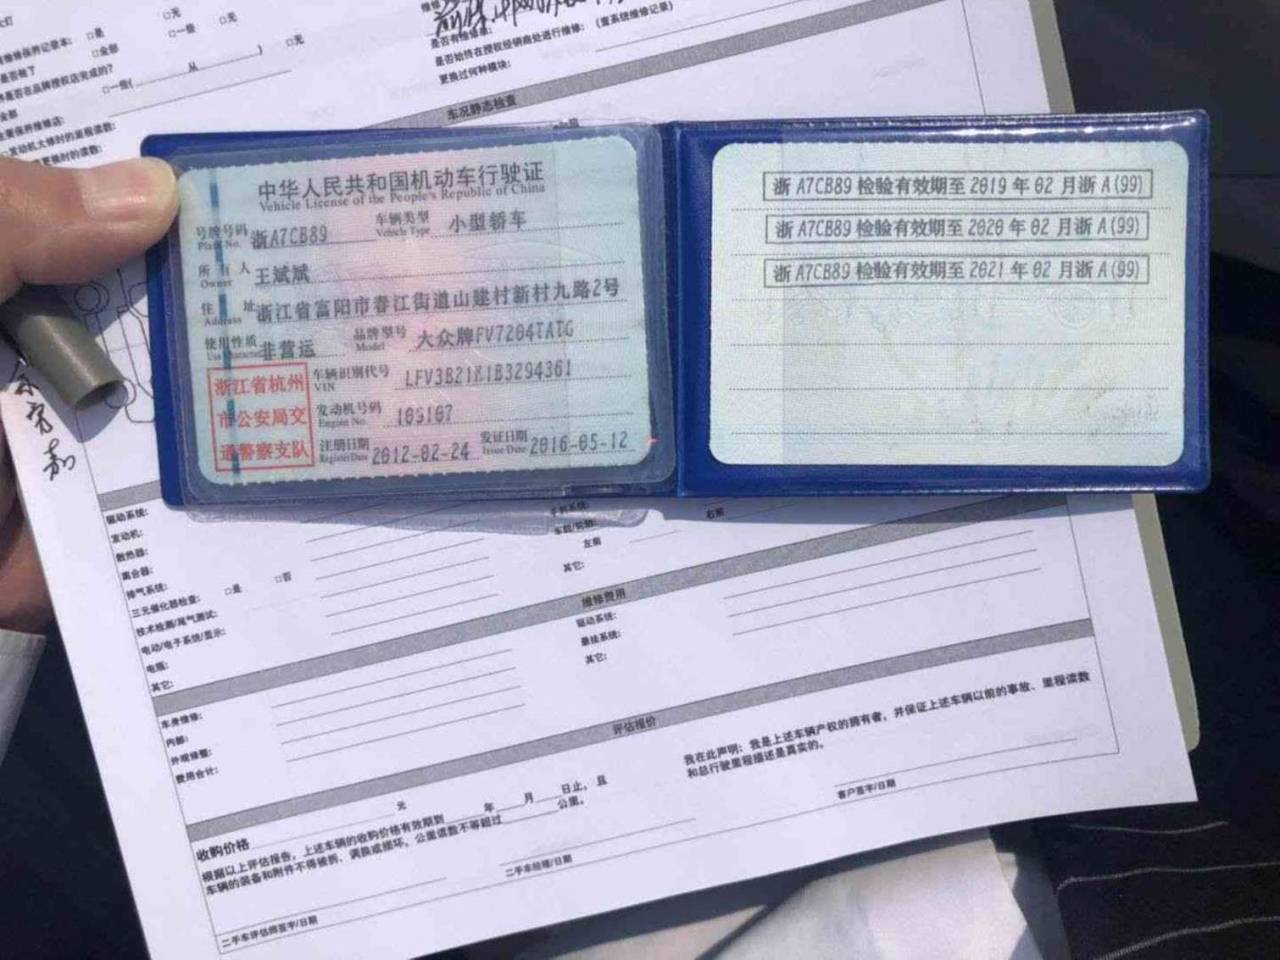 □无
□一般
□无
维修保养记录本: □是
□全部
是否在品牌授权店完成的?
□一些(
从
) □无
发动机大修时的里程读数:
更换时的读数:
是否有维修单:
是否始终在授权经销商处进行维修: (查系统维修记录)
更换过何种模块:
车况静态检查
中华人民共和国机动车行驶证
Vehicle License of the People's Republic of China
号牌号码 浙A7CB89 车辆类型 小型轿车
Plate No. Vehicle Type
所有人 王斌斌
Owner
住址 浙江省富阳市春江街道山建村新村九路2号
Address
使用性质 非营运 品牌型号 大众牌FV7204TATG
Use Character Model
浙江省杭州
市公安局交
通警察支队
车辆识别代号 LFV3B21K1B3294361
VIN
发动机号码 109167
Engine No.
注册日期 2012-02-24 发证日期 2016-05-12
Register Date Issue Date
浙A7CB89检验有效期至2019年02月浙A(99)
浙A7CB89检验有效期至2020年02月浙A(99)
浙A7CB89检验有效期至2021年02月浙A(99)
驱动系统:
发动机:
散热器:
离合器:
排气系统:
三元催化器检查: □是 □否
技术检测/尾气测试:
电动/电子系统/显示:
电瓶:
其它:
右前
左前
其它:
维修费用
车身维修:
内部:
外观修整:
费用合计:
驱动系统:
悬挂系统:
其它:
评估报价
收购价格 元
根据以上评估报告, 上述车辆的收购价格有效期到 年 月 日止, 且
车辆的装备和附件不得被拆、调换或损坏, 公里读数不等超过 公里。
我在此声明: 我是上述车辆产权的拥有者, 并保证上述车辆以前的事故、里程读数
和总行驶里程描述是真实的。
二手车评估师签字/日期
二手车经理/日期
客户签字/日期